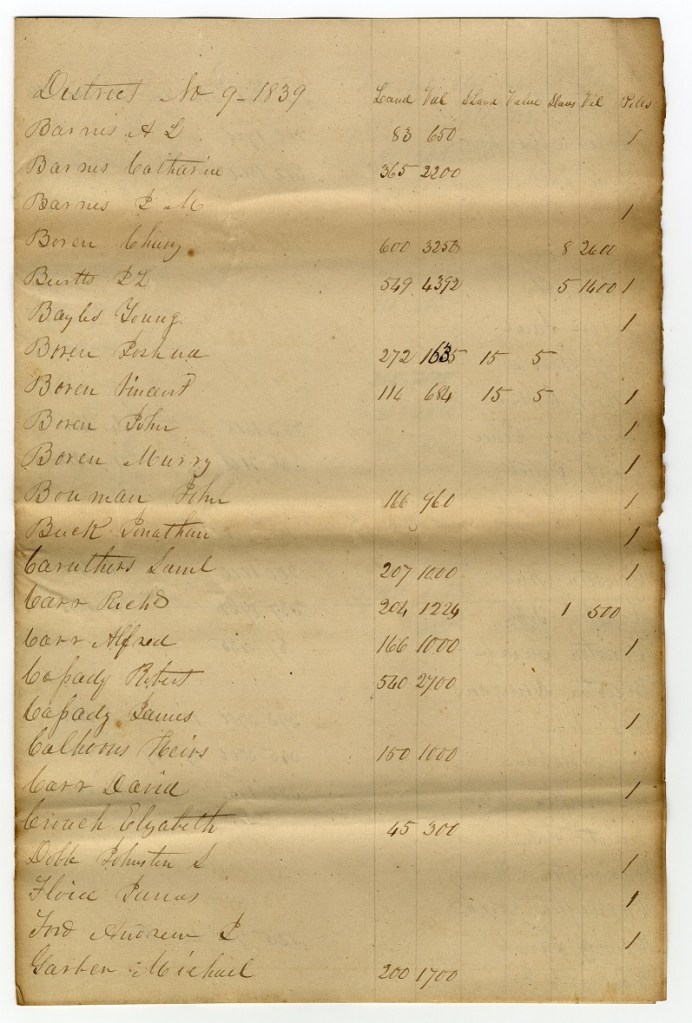 District No 9 - 1839 Land Val S Land Value Slaves Val Polls
Barnes A L 83 650 1
Barnes Catharine 365 2200
Barnes J M 1
Boren Chany 600 3250 8 2600
Burtts P L 549 4392 5 1400 1
Bayles Young 1
Boren Joshua 272 1635 15 5
Boren Vincent 116 684 15 5 1
Boren John 1
Boren Murry 1
Bowman John 166 960 1
Buck Jonathan 1
Caruthers Saml 207 1000 1
Carr Richd 204 1224 1 500
Carr Alfred 166 1000 1
Cassady Robert 540 2700
Cassady James 1
Calhoons Heirs 150 1000
Carr David 1
Crouch Elizabeth 45 300
Johnston S 1
James 1
Ford Andrew J 1
Garber Michael 200 1700